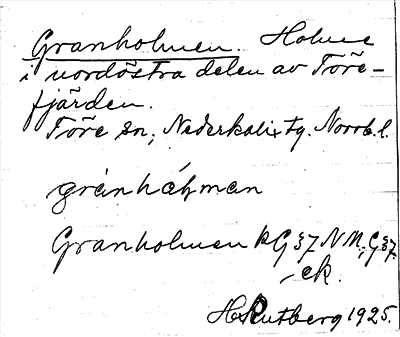 Granholmen. Holme
i nordöstra delen av Töre-
fjärden.
Töre sn, Nederkalix tg. Norrb. l.
Granholmen kG 37 NM; G 37.
ek.
H. Rutberg 1925.